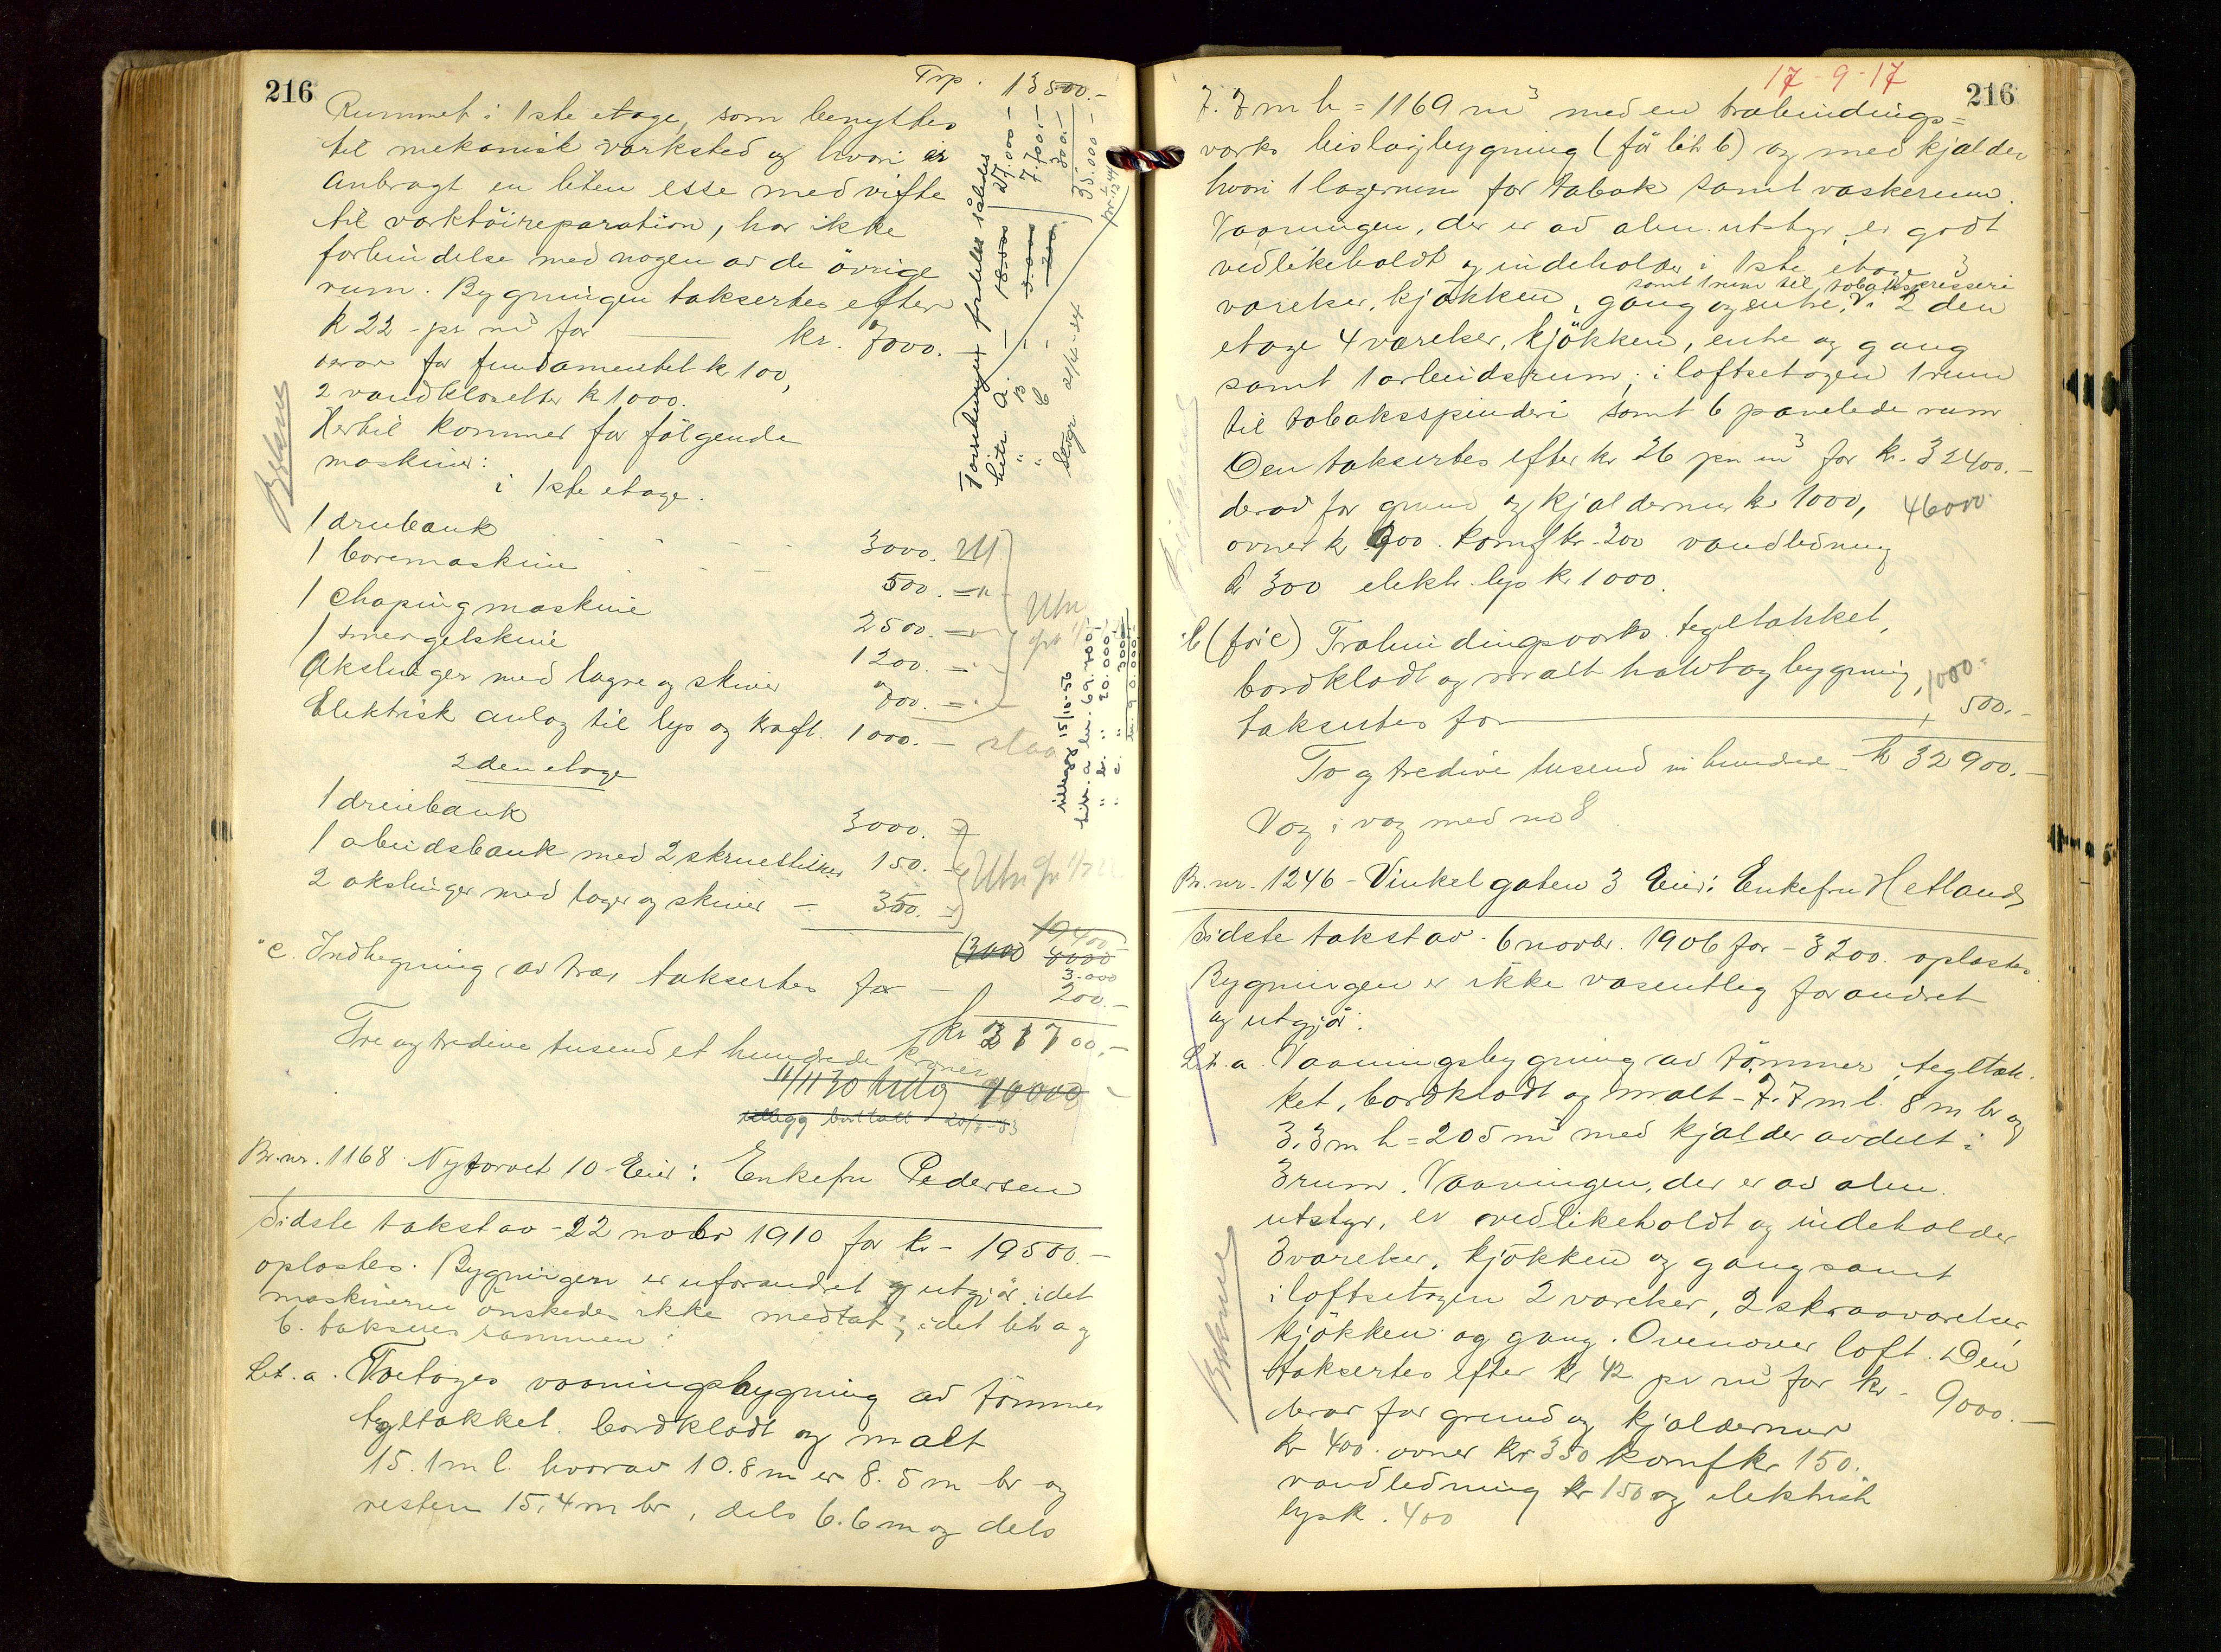 216
Trp. 13500.-
Rummet i 1ste etage, som benyttes
til mekanisk værksted og hvori er
anbragt en liten esse med vifte
til værktöireparation, har ikke
forbindelse med nogen av de övrige
rum. Bygningen taksertes efter
k 22 - pr m³ for kr. 7000.
derav for fundamentet k 100,
2 vandklosetter k 1000.
Hertil kommer for fölgende
maskiner:
i 1ste etage.
1 dreiebank 3000.
1 boremaskine 500.
1 chapingmaskine 2500.
1 smergelskive 1200.
Akslinger med lagre og skiver 700.
Elektrisk anlæg til lys og kraft. 1000. -
2den etage
1 dreiebank 3000.
1 arbeidsbenk med 2 skruestikker 150.
2 akslinger med lager og skiver - 350.
10400
(3000 8000
3.000
"c. Indhegning av træ, taksertes for - 200.-
kr 31700.-
Tre og tredive tusend et hundrede kroner
11/11 30 tillæg 90000
tillegg bortfalt
Forsikringen fordeles således
Litr. a. - 18.000 27.000 -
" B - 7.700.-
" C - 200 300.-
35.000 -
tillegg 15/10-56
Litr. a kr. 69.700.-
" b. " 20.000.-
" c. " 300.-
kr. 90.000.-
Br. nr. 1168 Nytorvet 10 - Eier: Enkefru Pedersen
Sidste takst av - 22 nobr 1910 for kr - 19500 -
oplæstes. Bygningen er uforandret og utgjör, idet
maskinerne önskedes ikke medtat, idet lit a og
b. takseres sammen:
Lit. a. Toetages vaaningsbygning av tömmer
tegltækket, bordklædt og malt
15.1 m l. hvorav 10.8 m er 8.5 m br og
resten 15,4 m br, dels 6.6 m og dels
17-9-17
216
7.7 m h = 1169 m³ med en træbindings=
værks bislagbygning (för lit b) og med kjælder
hvori 1 lagerrum for tobak samt vaskerum.
Vaaningen, der er av alm. utstyr, er godt
vedlikeholdt og indeholder i 1ste etage 3
samt 1 rum til tobakspresseri
værelser, kjökken, gang og entre, i 2den
etage 4 værelser, kjökken, entre og gang
samt 1 arbeidsrum; i loftsetagen 1 rum
til tobaksspinderi samt 6 panelede rum
Den taksertes efter kr 26 pr m³ for kr. 32400.-
derav for grund og kjældermur kr 1000, 46000
ovner k 900. komf kr. 200 vandledning
k 300 elektr. lys kr 1000.
b (för c) Træbindingsværks tegltækket,
bordklædt og malt halvtagbygning, 1000.-
taksertes for 500.-
To og tredive tusend ni hundrede k 32900.-
Væg i væg med no 8
Br. nr. 1246 - Vinkelgaten 3 Eier: Enkefru Hetland
Sidste takst av 6 novbr. 1906 for - 3200. oplæstes
Bygningen er ikke væsentlig forandret
og utgjör:
Lit. a. Vaaningsbygning av tömmer, tegltæk-
ket, bordklædt og malt - 7.7 m l. 8 m br og
3,3 m h = 205 m³ med kjælder avdelt i
3 rum. Vaaningen, der er av alm.
utstyr, er vedlikeholdt og indeholder
3 værelser, kjökken og gang samt
i loftsetagen 2 værelser, 2 skraaværelser,
kjökken og gang. Ovenover loft. Den
taksertes efter kr 42 pr m³ for kr - 9000.-
derav for grund og kjældermur
kr 400. ovner kr 350 komf kr 150.
vandledning kr 150 og elektrisk
lys k. 400